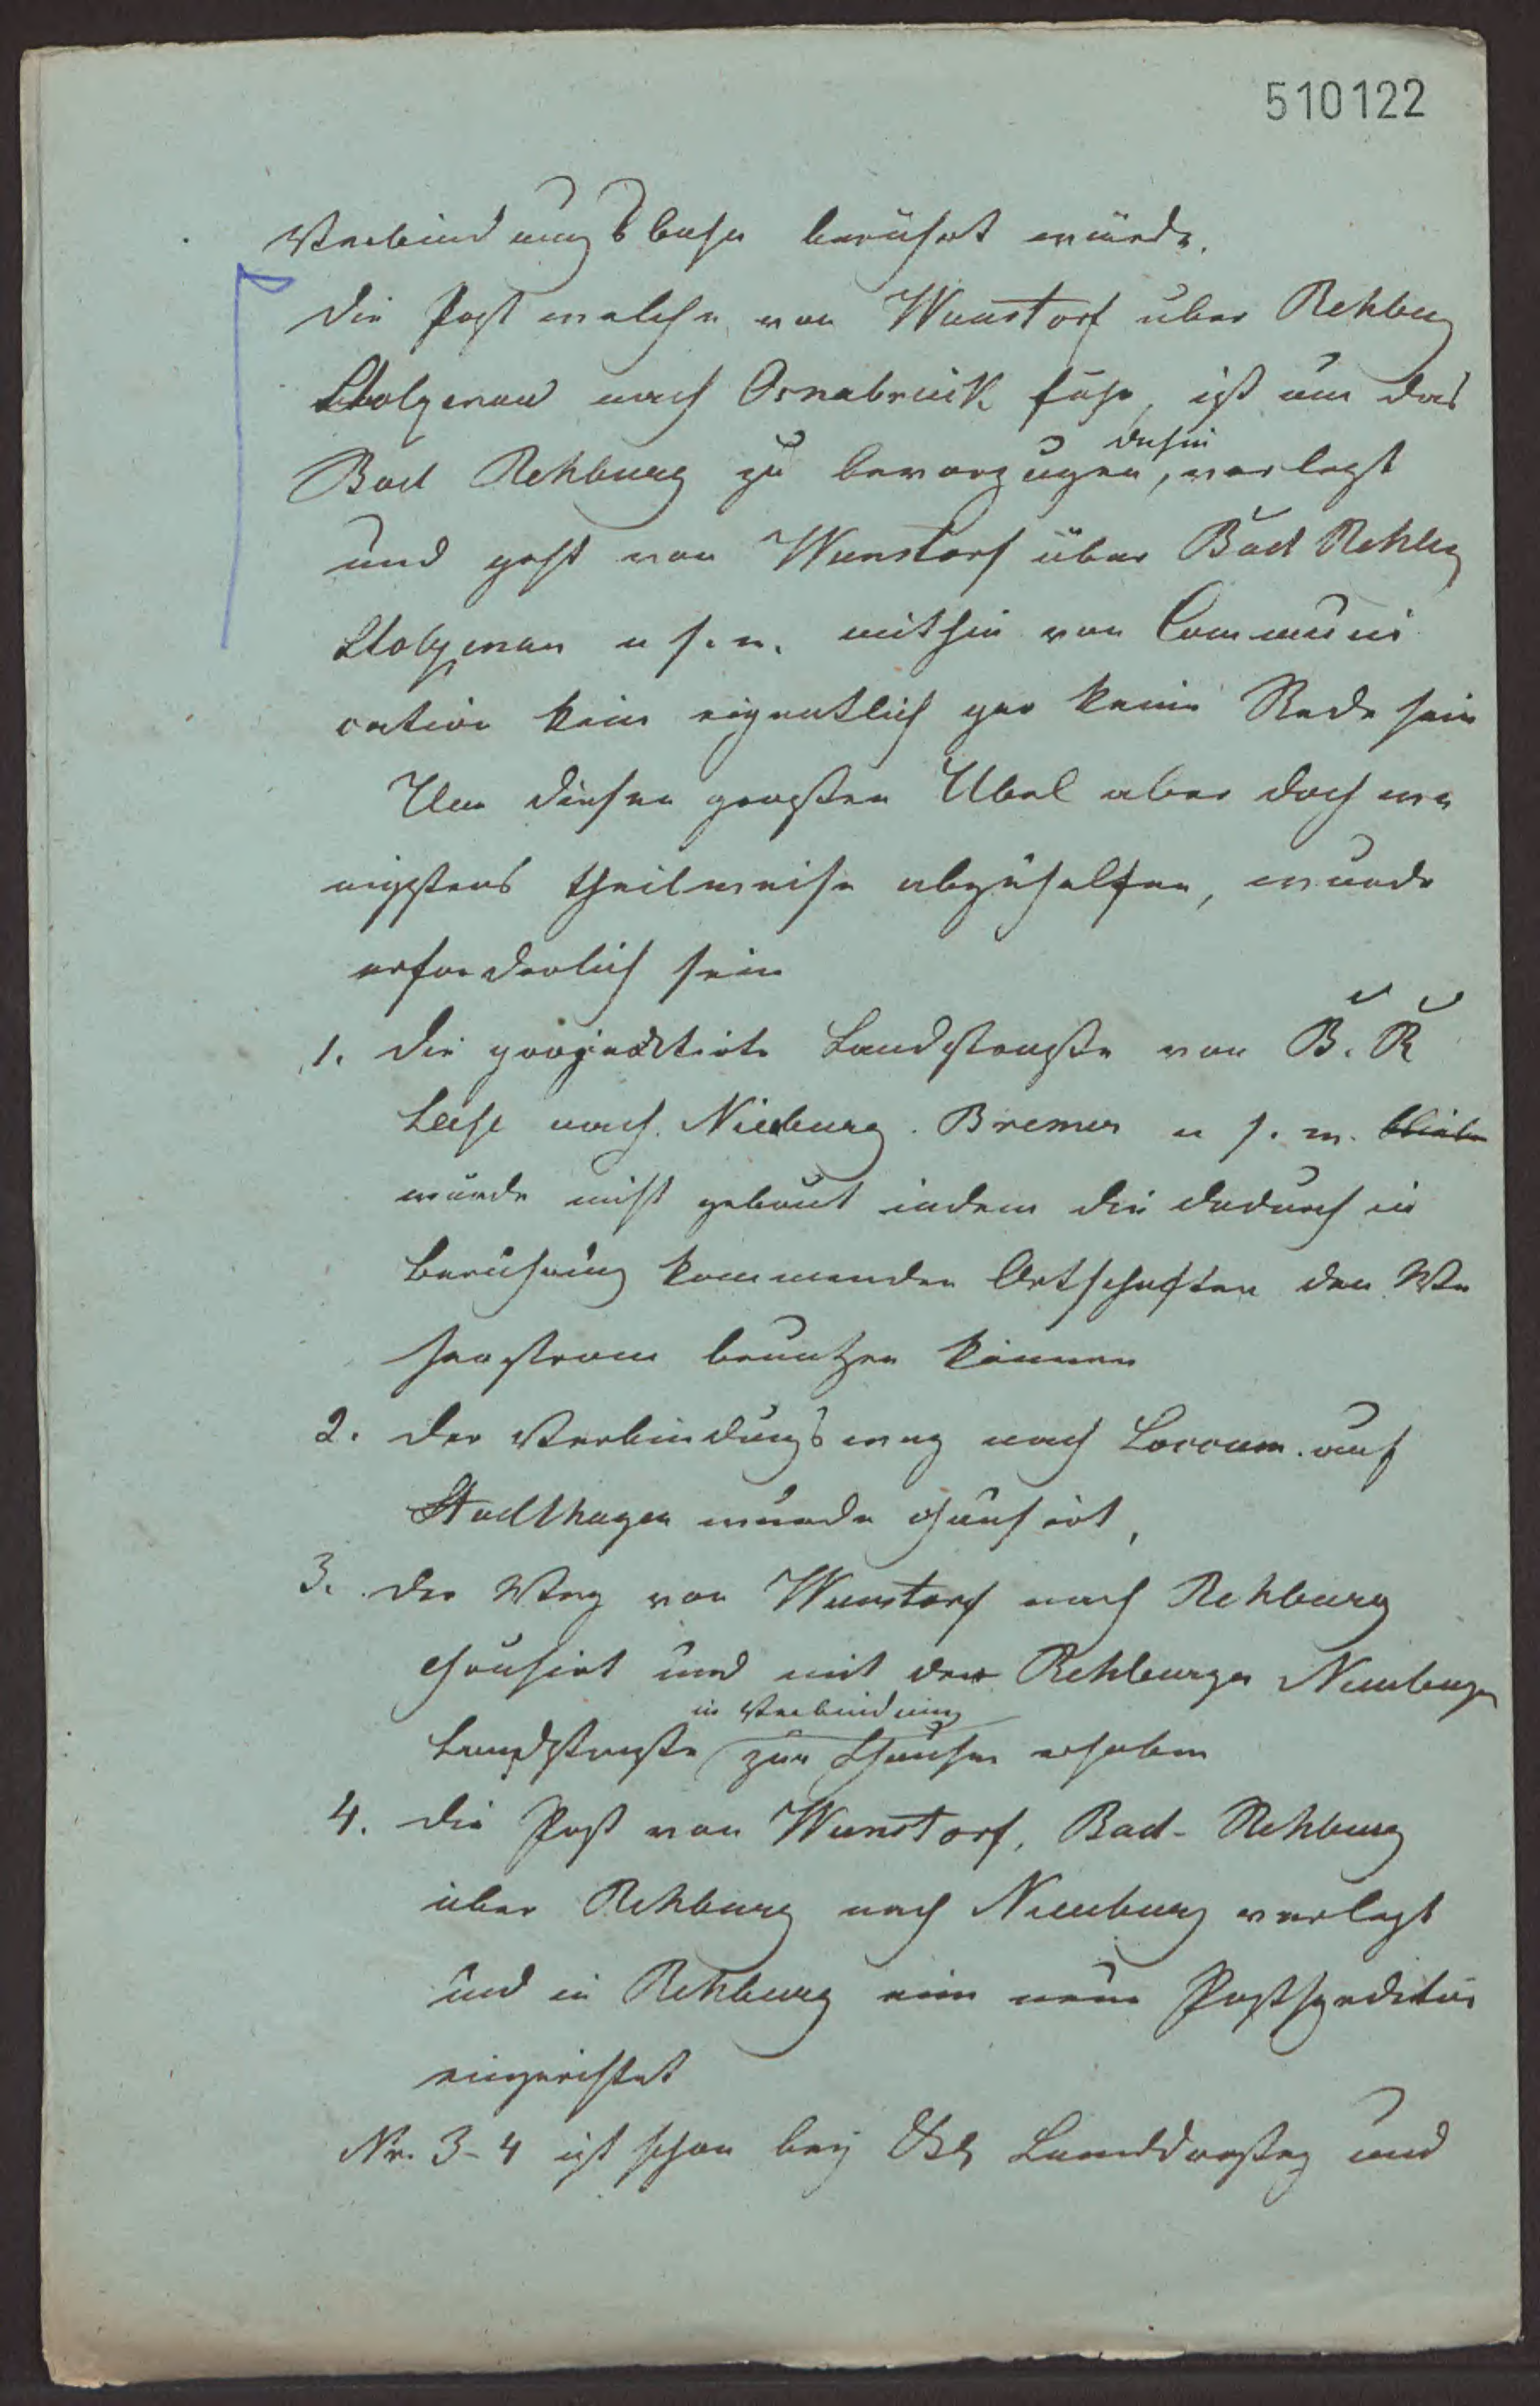 510122
Verbindungsbahn berührt würde.
Die Post welche von Wunstorf über Rehburg
Stolzenau nach Osnabrück fuhr, ist um das
dahin
Bad Rehburg zu bevorzugen, verlegt
und geht von Wunstorf über Bad Rehbg
Stolzenau u s. w. mithin von Communi
cation kein eigentlich gar keine Rede sein
Um diesen großen Übel aber doch we
nigstens theilweise abzuhelfen, wurde
erforderlich sein
1. die projectirte Landstraße von B. R
Leese nach Nienburg. Bremen u s. w. bliebe
würde nicht gebaut indem die dadurch in
Berührung kommenden Ortschaften den We
serstrom benutzen können
2. der Verbindungsweg nach Loccum. auf
Stadthagen wurde chausirt,
3. der Weg von Wunstorf nach Rehburg
chausirt und mit der Rehburger Nienburger
in Verbindung
Landstraße zur Chausee erhoben
4. die Post von Wunstorf, Bad-Rehburg
über Rehburg nach Nienburg verlegt
und in Rehburg eine neue Postspedition
eingerichtet
Nr. 3-4 ist schon bey Landdrostey und